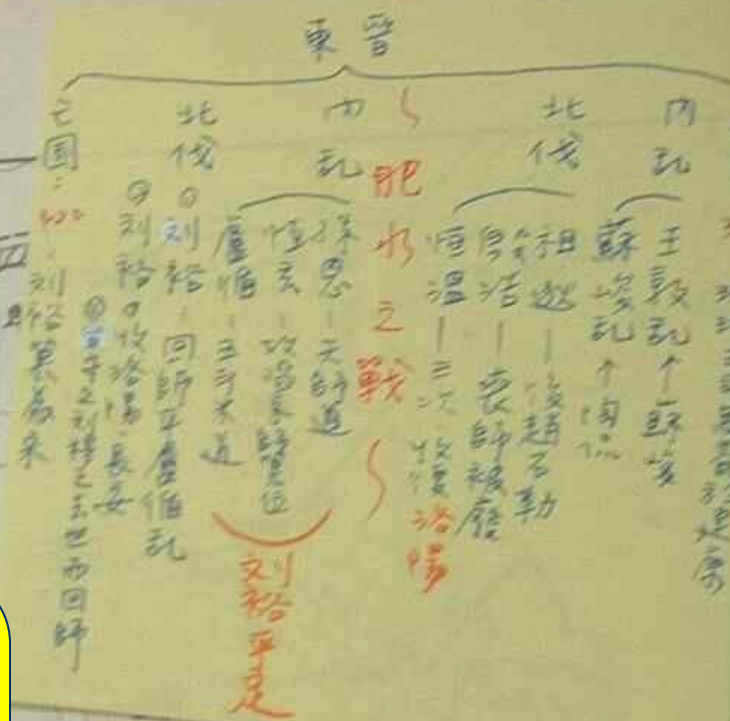 東晉
內乱
王敦乱↑蘇峻
蘇峻乱↑陶侃
北伐
祖逖—後趙石勒
殷浩—喪師被廢
恒温—三次.收復洛陽
~肥水之戰~
內乱
孫恩-天師道
恒玄-攻陷京師篡位
盧循-五斗米道
刘裕平定
北伐
①刘裕-回師平盧循乱
②刘裕①收洛陽.長安
②留守之刘穆之去世而回師
亡国:420-刘裕篡為宋